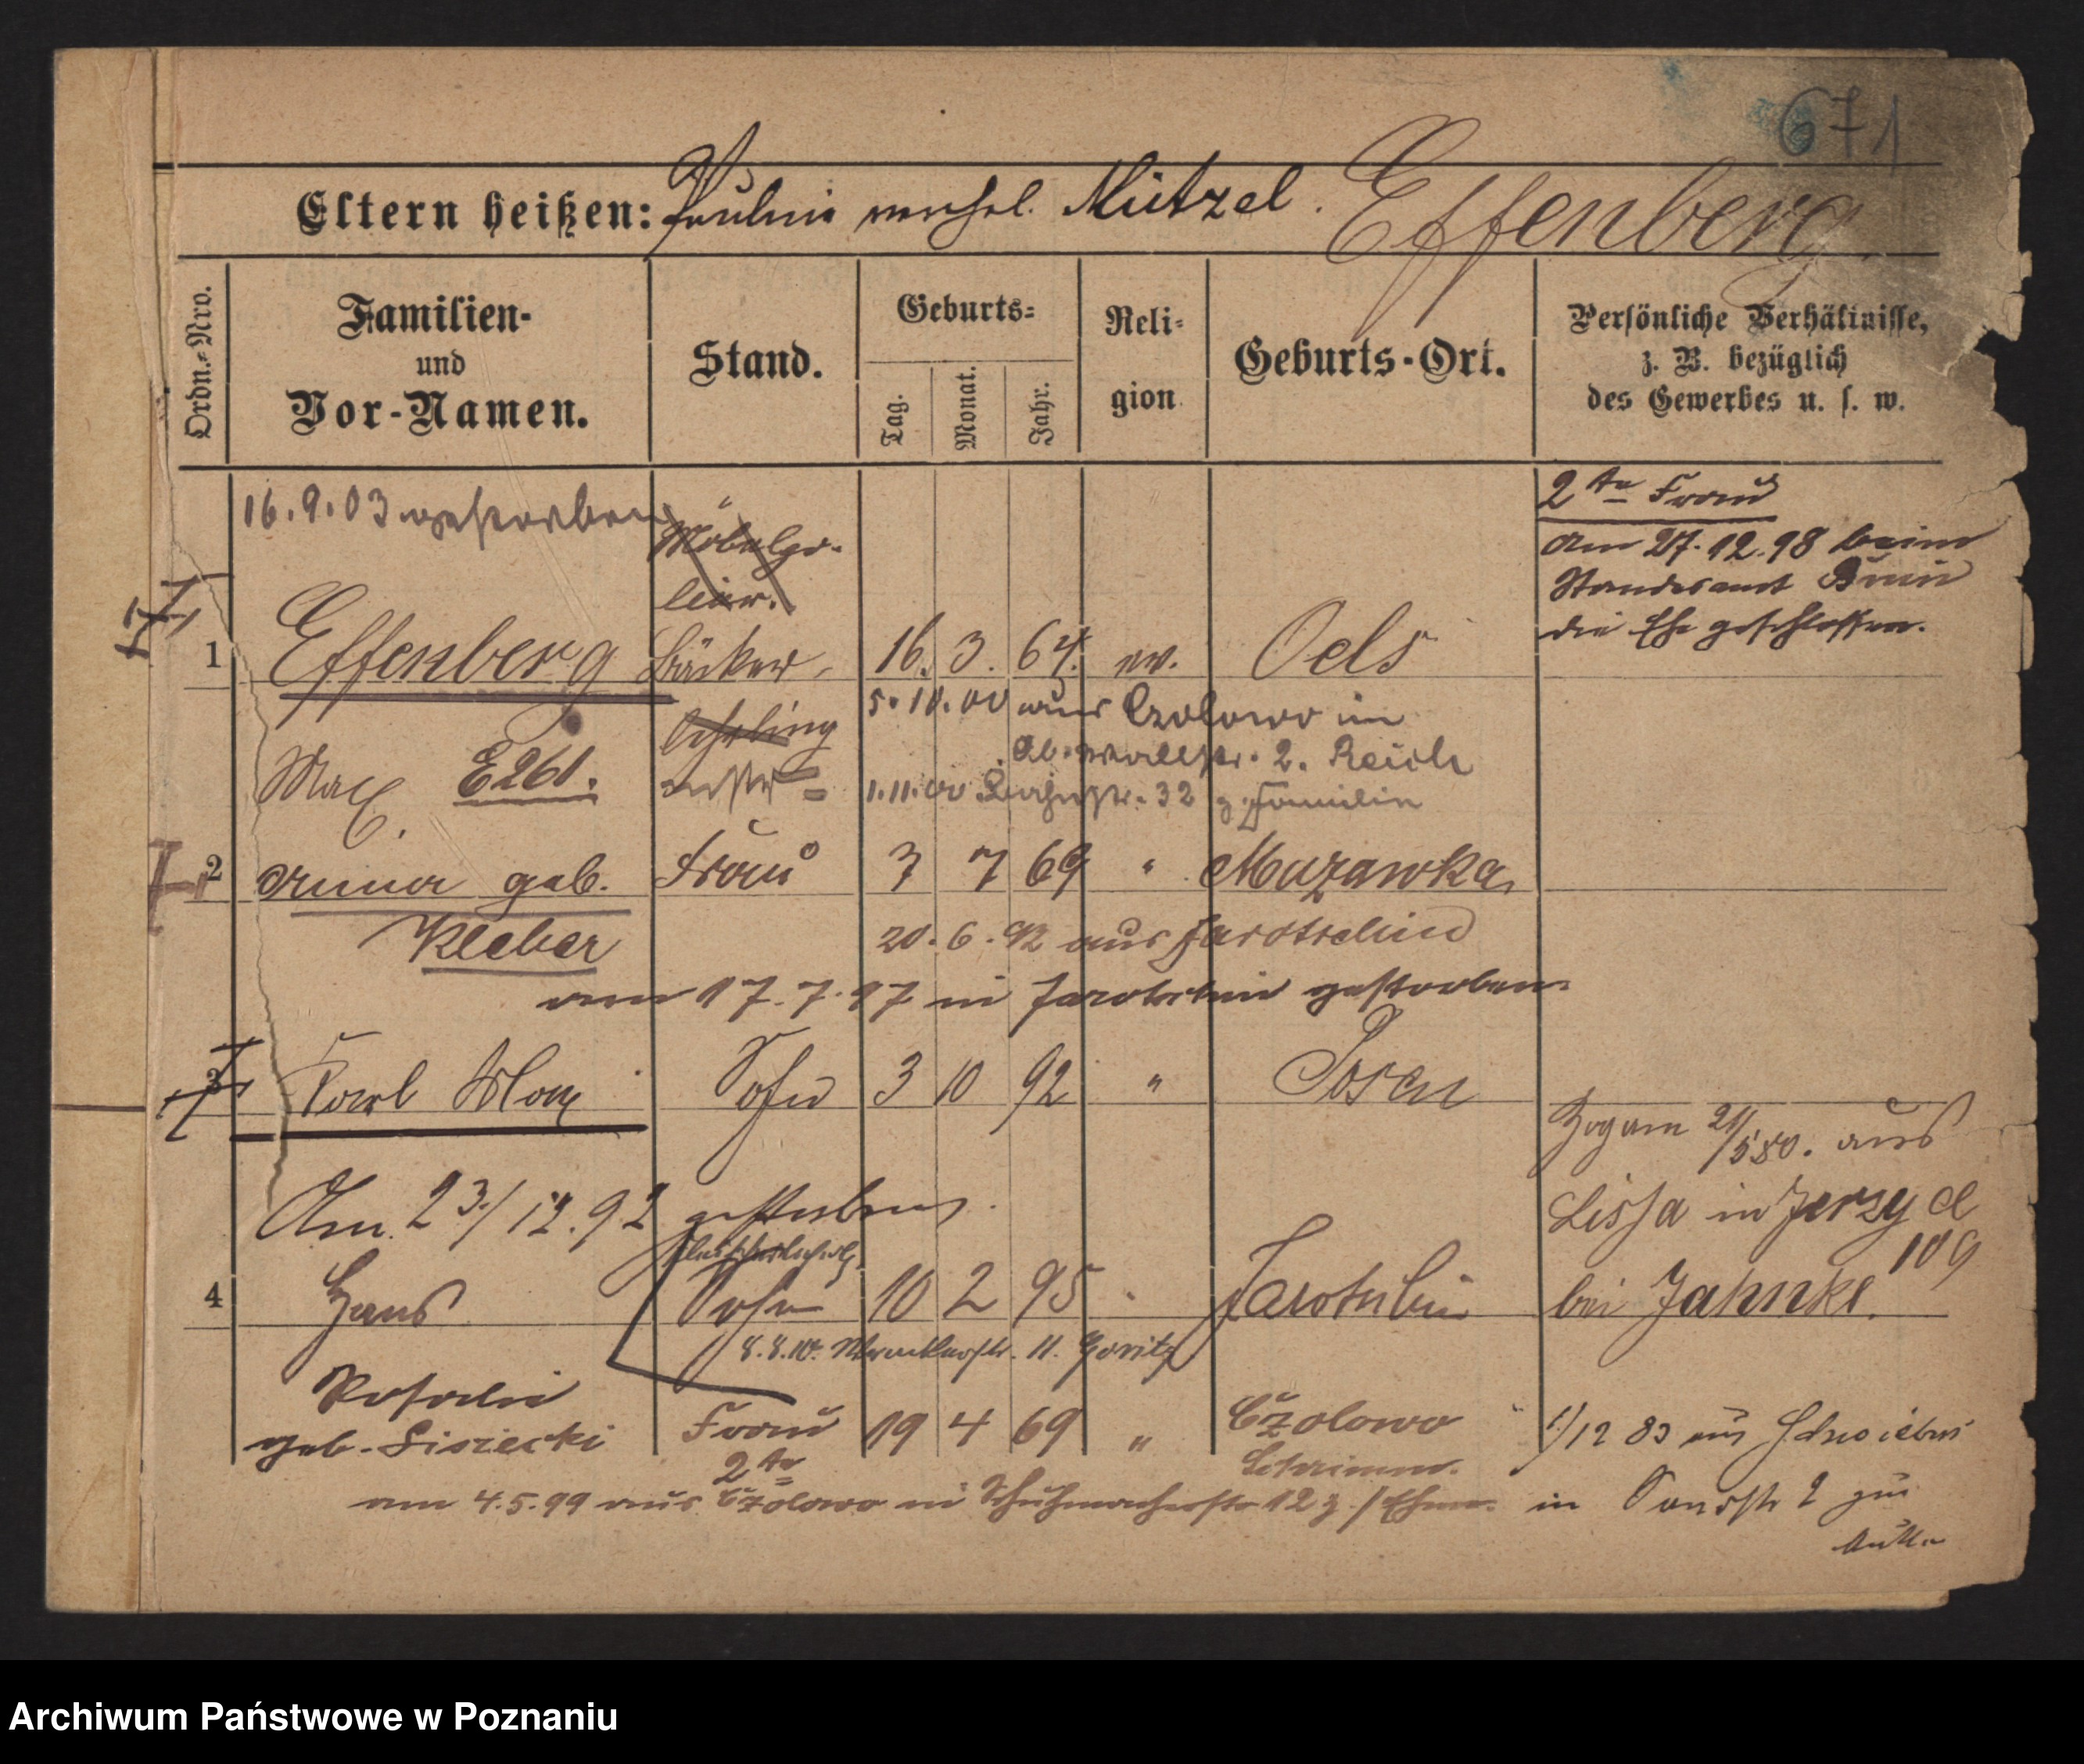 671
Eltern heißen: Paulin verehel. Mützel. Effenberg
Ordn.-Nro.
Familien- und Vor-Namen.
Stand.
Geburts-
Tag.
Monat.
Jahr.
Reli-
gion
Geburts-Ort.
Persönliche Verhältnisse,
z. B. bezüglich
des Gewerbes u. s. w.
16.9.03 gestorben
2te Frau
am 27.12.98 beim
Standesamt Bnin
die Ehe geschlossen.
1 Effenberg Bäcker 16. 3. 64. ev. Oels
5.10.00 aus Czolowo in
2. Reich
Max E261.
1.11.00 32 z. Familie
2 Anna geb. Frau 3 7 69 " Mazawka
Kleber 20.6.92 aus Jarotschin
am 17.7.97 in Jarotschin gestorben.
3 Karl Max Sohn 3 10 92 " Posen
Zog am 21/5 80. aus
Am 23/12.92 gestorben.
Lissa in Jerzyce 109
4 Hans Sohn 10 2 95 Jarotschin
bei Jahnke.
8.8.10. 11. Goritz
Rosalie
geb. Sisiecki Frau 19 4 69 " Czolowo
1/12 83 aus Schwiebus
2te
Schrimm.
am 4.5.99 aus Czolowo in Schuhmacherstr 12 z. / Ehem.
in Sandstr 2 zur